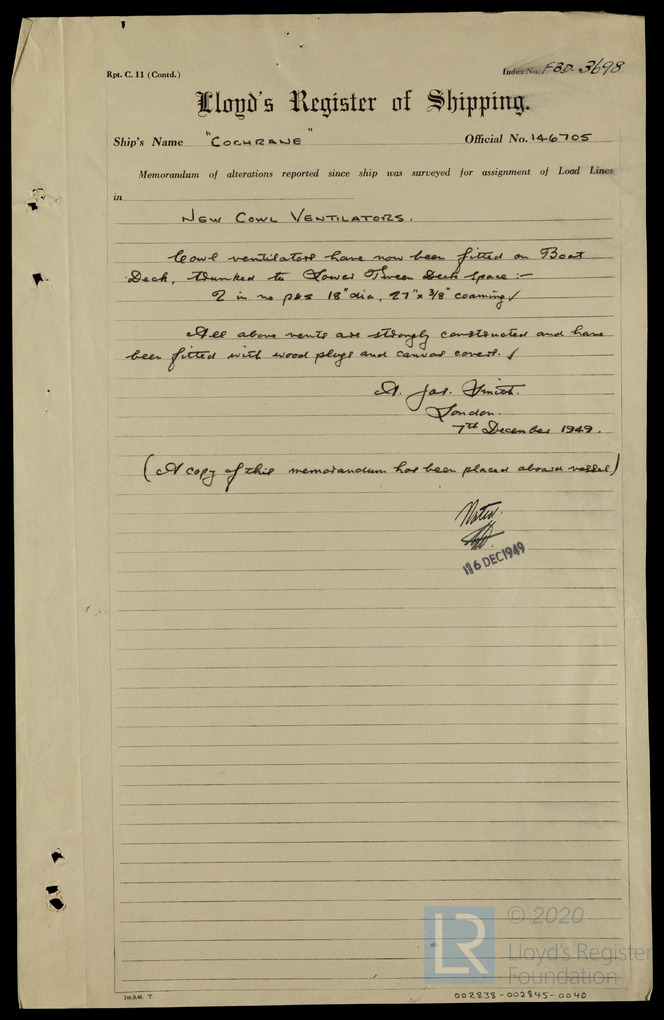 Rpt. C. 11 (Contd.)
Index No. FBD. 3698
Lloyd's Register of Shipping.
Ship's Name "COCHRANE" Official No. 146705
Memorandum of alterations reported since ship was surveyed for assignment of Load Lines
in
NEW COWL VENTILATORS.
Cowl ventilators have now been fitted on Boat
Deck, trunked to Lower Tween Deck space :-
2 in no p&s 18" dia, 27" x 3/8" coaming ✓
All above vents are strongly constructed and have
been fitted with wood plugs and canvas covers. ✓
A. Jas. Smith.
London.
7th December 1949.
(A copy of this memorandum has been placed aboard vessel)
Noted.
16 DEC 1949
© 2020
LR
Lloyd's Register
Foundation
1m,9,46. T.
002838-002845-0040